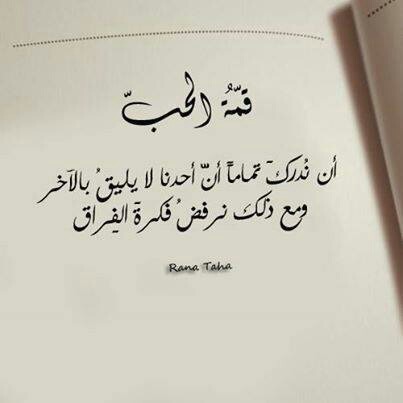 قمّةُ الحبّ
أن نُدركَ تماماً أنّ أحدنا لا يليقُ بالآخر
ومع ذلك نرفضُ فكرةَ الفِراق
Rana Taha